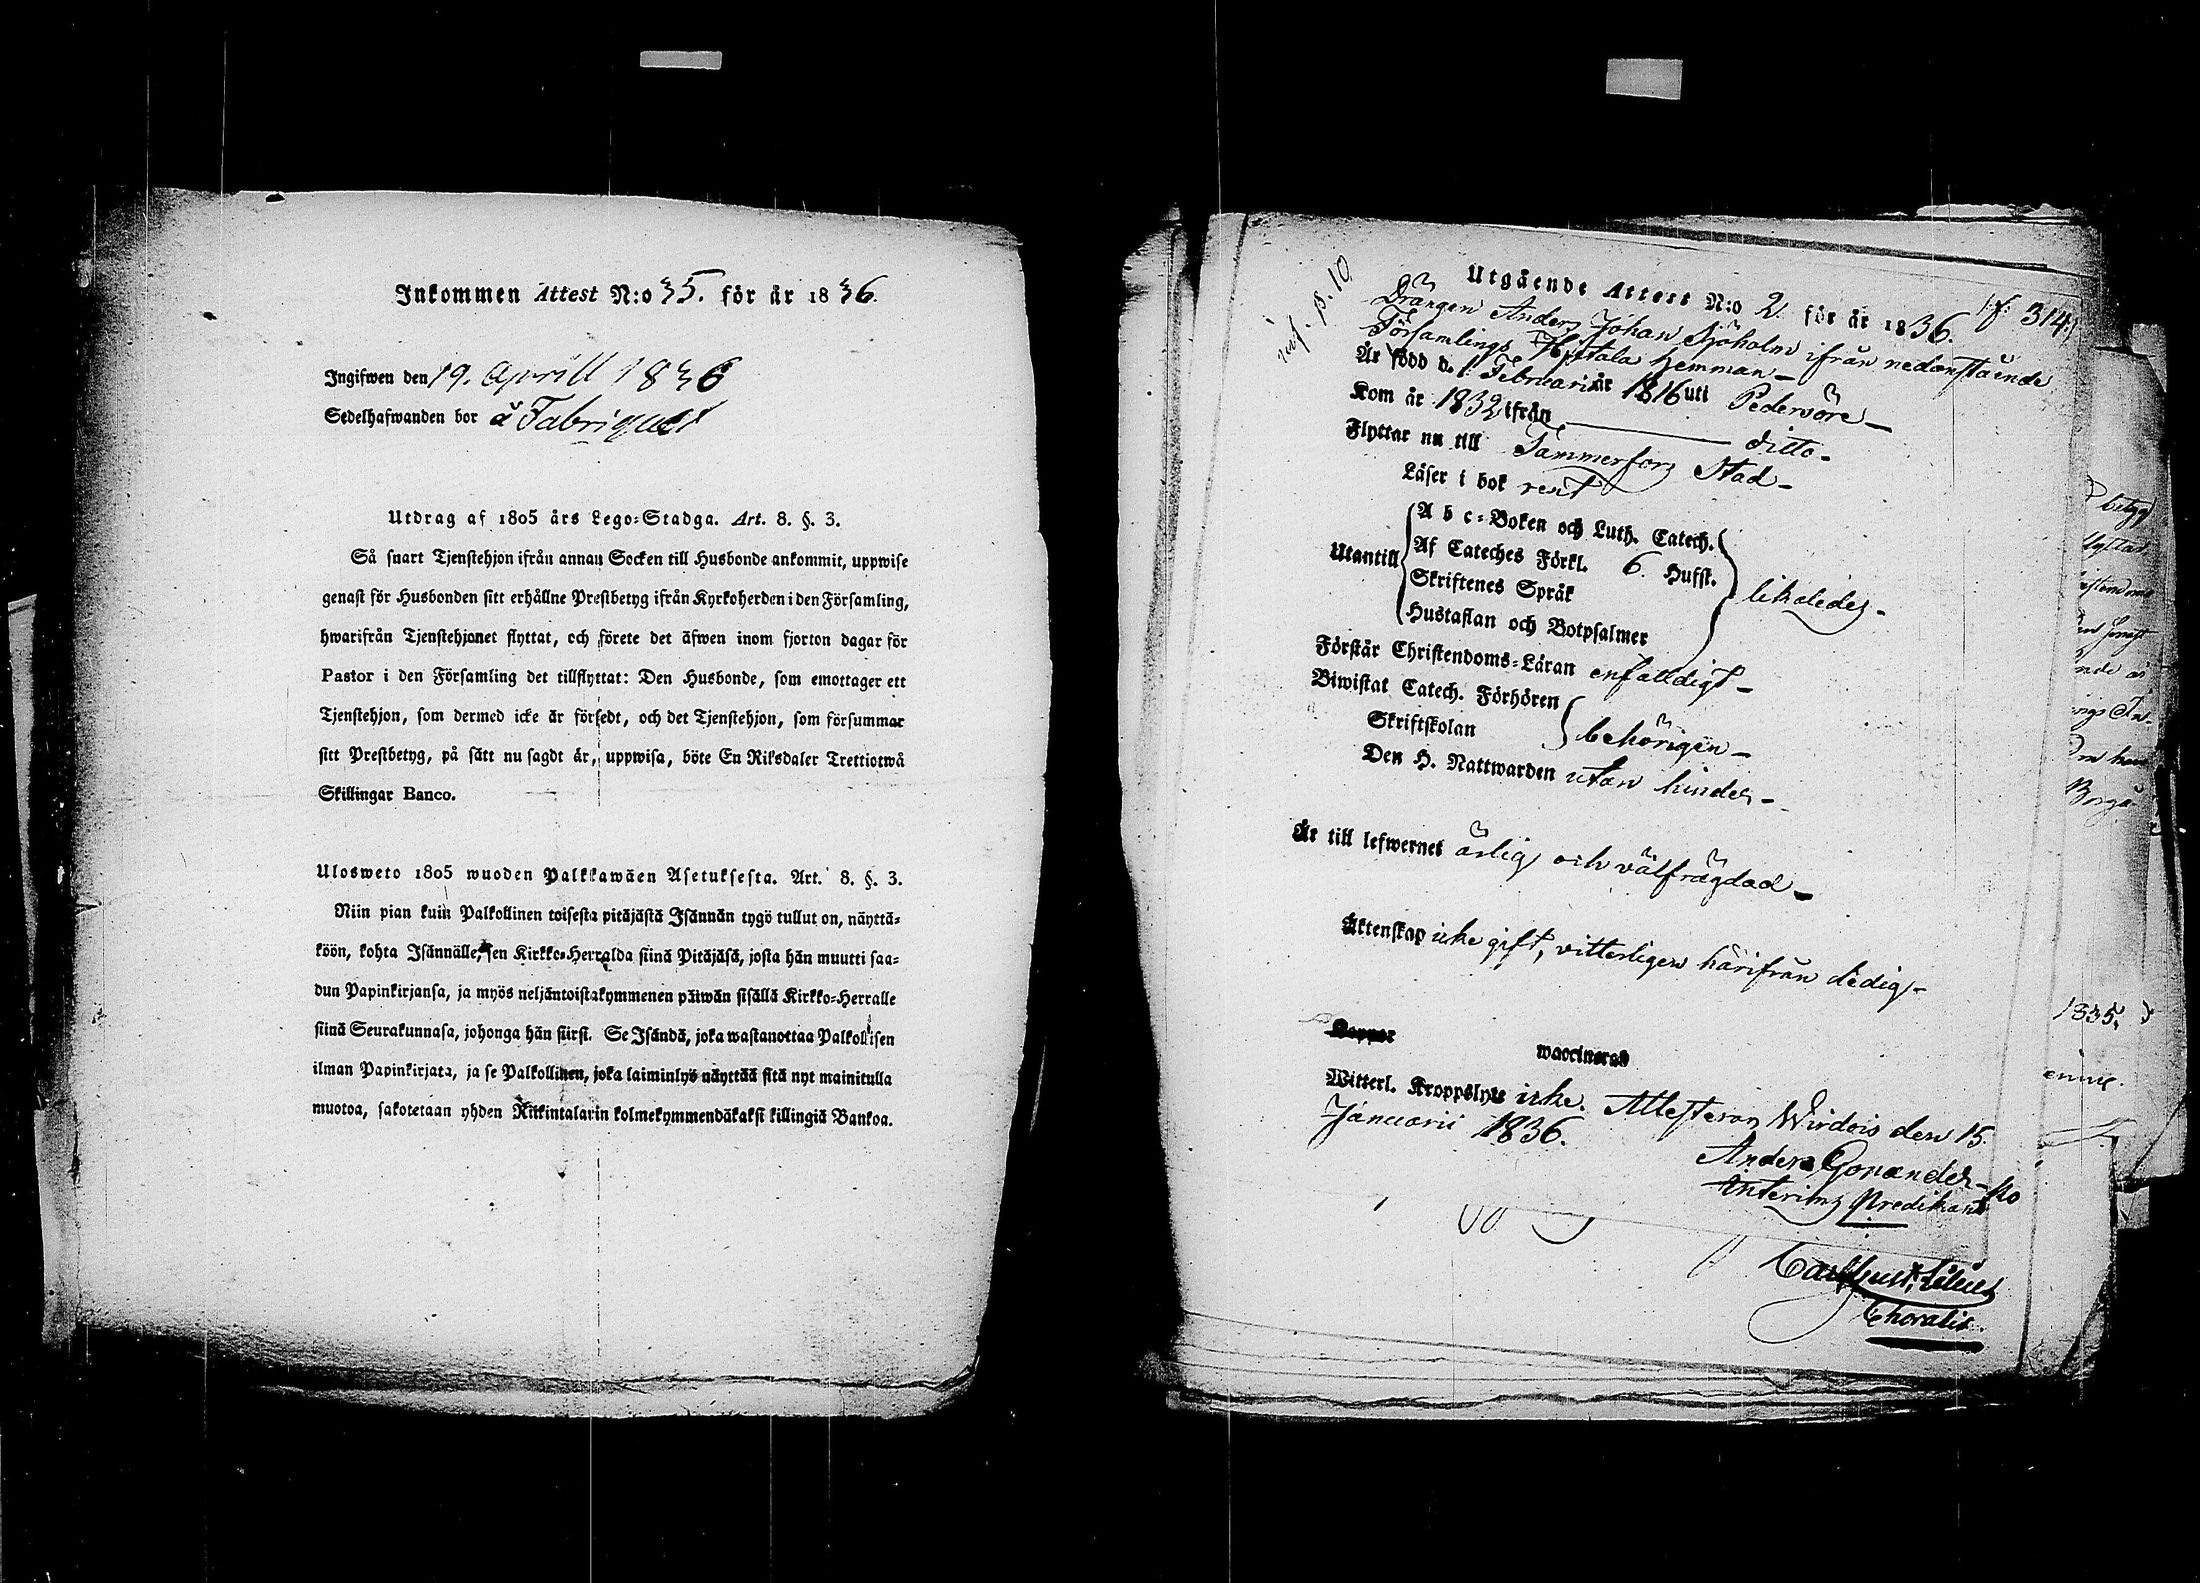 Inkommen Attest N:o 35. för år 1836.
Ingifwen den 19. Aprill 1836
Sedelhafwanden bor å Fabriquet
Utdrag af 1805 års Lego-Stadga. Art. 8. §. 3.
Så snart Tjenstehjon ifrån annan Socken till Husbonde ankommit, uppwise
genast för Husbonden sitt erhållne Prestbetyg ifrån Kyrkoherden i den Församling,
hwarifrån Tjenstehjonet flyttat, och förete det äfwen inom fjorton dagar för
Pastor i den Församling det tillflyttat: Den Husbonde, som emottager ett
Tjenstehjon, som dermed icke är försedt, och det Tjenstehjon, som försummar
sitt Prestbetyg, på sätt nu sagdt är, uppwisa, böte En Riksdaler Trettiotwå
Skillingar Banco.
Ulosweto 1805 wuoden Palkkawäen Asetuksesta. Art. 8. §. 3.
Niin pian kuin Palkollinen toisesta pitäjästä Isännän tygö tullut on, näyttä-
köön, kohta Isännälle, sen Kirkko-Herralda siinä Pitäjäsä, josta hän muutti saa-
dun Papinkirjansa, ja myös neljäntoistakymmenen päiwän sisällä Kirkko-Herralle
siinä Seurakunnasa, johonga hän siirsi. Se Isändä, joka wastanottaa Palkollisen
ilman Papinkirjata, ja se Palkollinen, joka laiminlyö näyttää sitä nyt mainitulla
muotoa, sakotetaan yhden Riikintalarin kolmekymmendäkaksi killingiä Bankoa.
inf. p. 10
Utgående Attest N:o 2. för år 1836. 1f: 314:
Drängen Anders Johan Sjöholm ifrån nedanstående
Församlings Hjitala Hemman-
Är född d. 1. Februarii år 1816 uti Pedersöre-
Kom år 1832 ifrån ditto-
Flyttar nu till Tammerfors Stad-
Läser i bok rent
Utantill
A b c-Boken och Luth. Catech.
Af Cateches Förkl. 6. Hufst.
Skriftenes Språk
Hustaflan och Botpsalmer
likaledes-
Förstår Christendoms-Läran enfalldigt-
Biwistat Catech. Förhören
Skriftskolan
behörigen-
Den H. Nattwarden utan hinder-
Är till lefwernet ärlig och välfrägdad-
Äktenskap icke gift, vitterligen härifrån ledig-
Koppor waccinerad
Witterl. Kroppslyte icke. Attesteras Wirdois den 15.
Januarii 1836.
Anders
Interims Predikant
Choralis.
betyg
1835.
Borgå